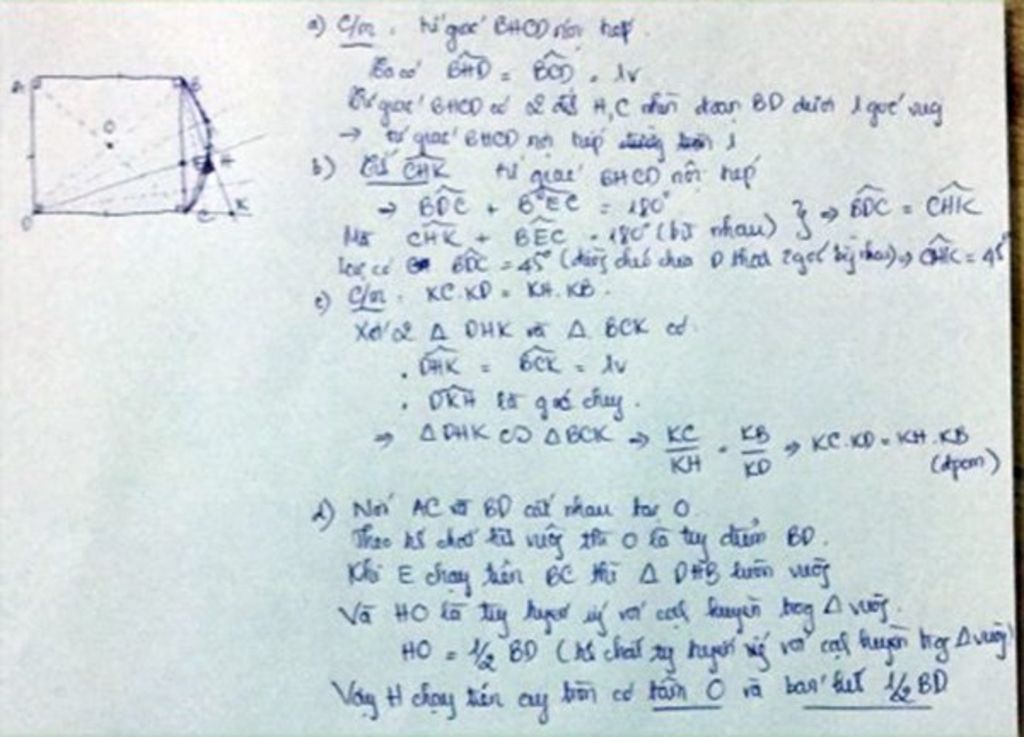 a) C/m. tứ giác BHCD nội tiếp.
Ta có BHD = BCD = 1v
Tứ giác BHCD có 2 đỉnh H, C nhìn đoạn BD dưới 1 góc vuông
→ tứ giác BHCD nội tiếp
b) CHK tứ giác BHCD nội tiếp
→ BDC + BHC = 180°
Mà CHK + BHC = 180° (bù nhau) } ⇒ BDC = CHK
BDC = 45° (đường chéo chia D thành 2 góc bằng nhau) ⇒ CHK = 45°
c) C/m. KC.KD = KH.KB.
Xét 2 Δ DHK và Δ BCK có
. DHK = BCK = 1v
. DKH là góc chung.
⇒ Δ DHK ∽ Δ BCK ⇒ KC/KH = KB/KD ⇒ KC.KD = KH.KB
(đpcm)
d) Nối AC và BD cắt nhau tại O
Theo t/c hình vuông thì O là tg điểm BD.
Khi E chạy trên BC thì Δ DHB luôn vuông
Và HO là tg tuyến ứg với cạh huyền trog Δ vuôg.
HO = 1/2 BD (t/c chất tg tuyến ứg với cạh huyền trog Δ vuôg)
Vậy H chạy trên cug tròn có tâm O và bán kính 1/2 BD
A
B
O
E
H
D
C
K